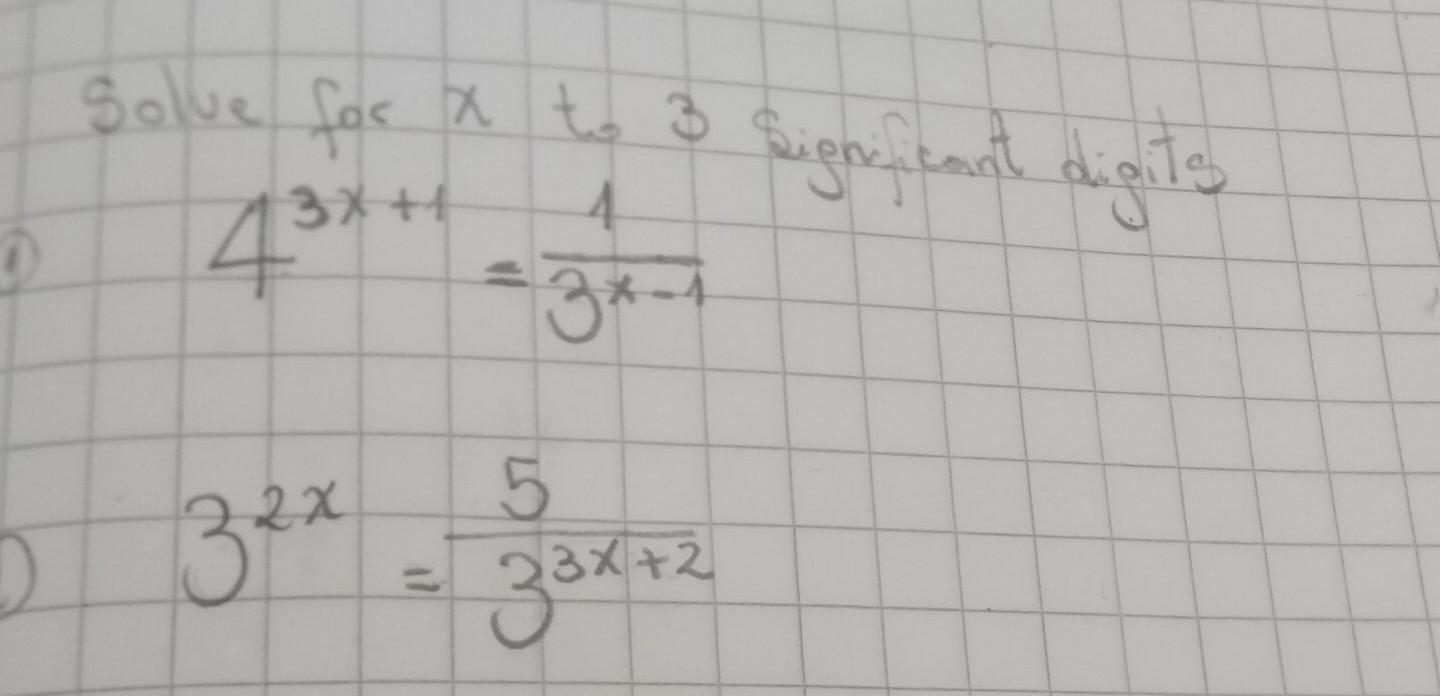 Solve for x to 3 Significant digits
① 4^{3x+1} = \frac{1}{3^{x-1}}
) 3^{2x} = \frac{5}{3^{3x+2}}